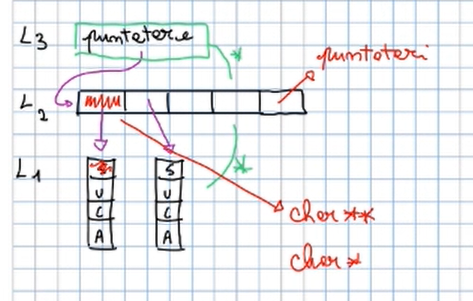 L3 puntatore
*
puntatori
L2
*
L1 S S
U U
C C
A A
char **
char *